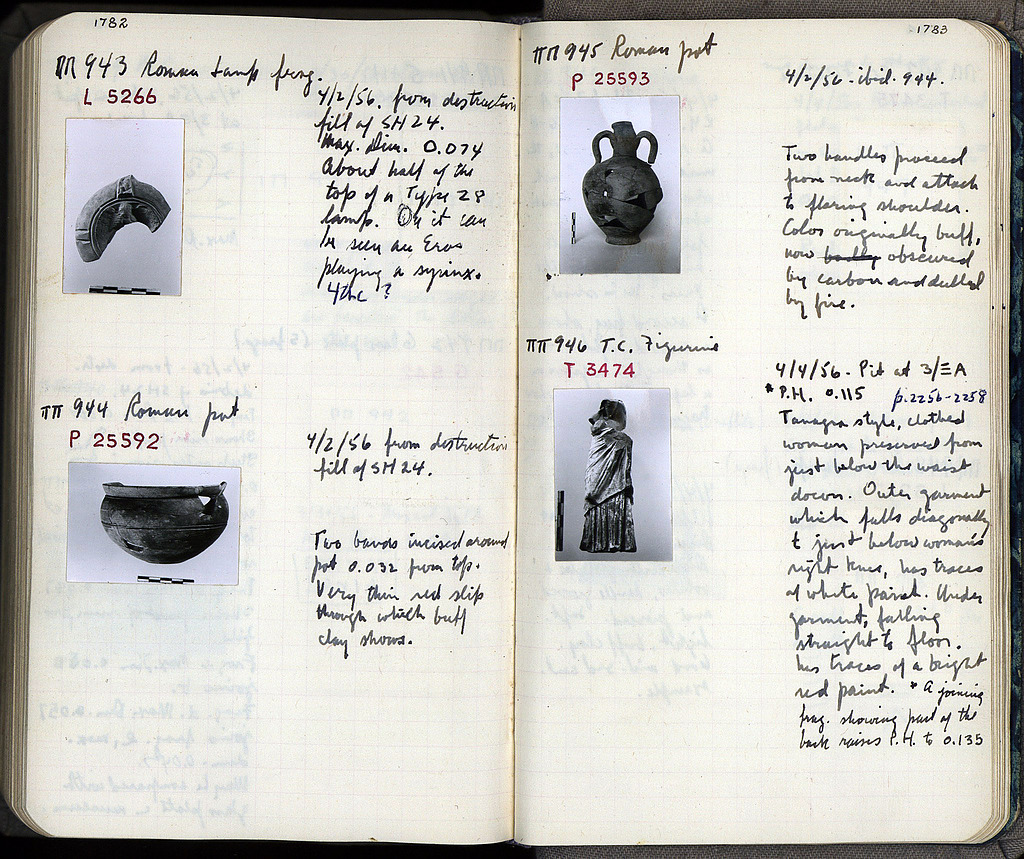 1782
ΠΠ 943 Roman Lamp frag.
L 5266
4/2/56. from destruction
fill of SH 24.
Max. Dim. 0.074
About half of the
top of a Type 28
lamp. On it can
be seen an Eros
playing a syrinx.
4thc ?
ΠΠ 944 Roman pot
P 25592
4/2/56 from destruction
fill of SH 24.
Two bands incised around
pot 0.032 from top.
Very thin red slip
through which buff
clay shows.
1783
ΠΠ 945 Roman pot
P 25593
4/2/56 ibid. 944
Two handles proceed
from neck and attach
to flaring shoulder.
Color originally buff,
now badly obscured
by carbon and dulled
by fire.
ΠΠ 946 T.C. Figurine
T 3474
4/4/56. Pit at 3/ΞA
* P.H. 0.115 p. 2256-2258
Tanagra style, clothed
woman preserved from
just below the waist
down. Outer garment
which falls diagonally
t just below woman's
right knee, has traces
of white paint. Under
garment, falling
straight to floor.
has traces of a bright
red paint. * A joining
frag. showing part of the
back raises P.H. to 0.135